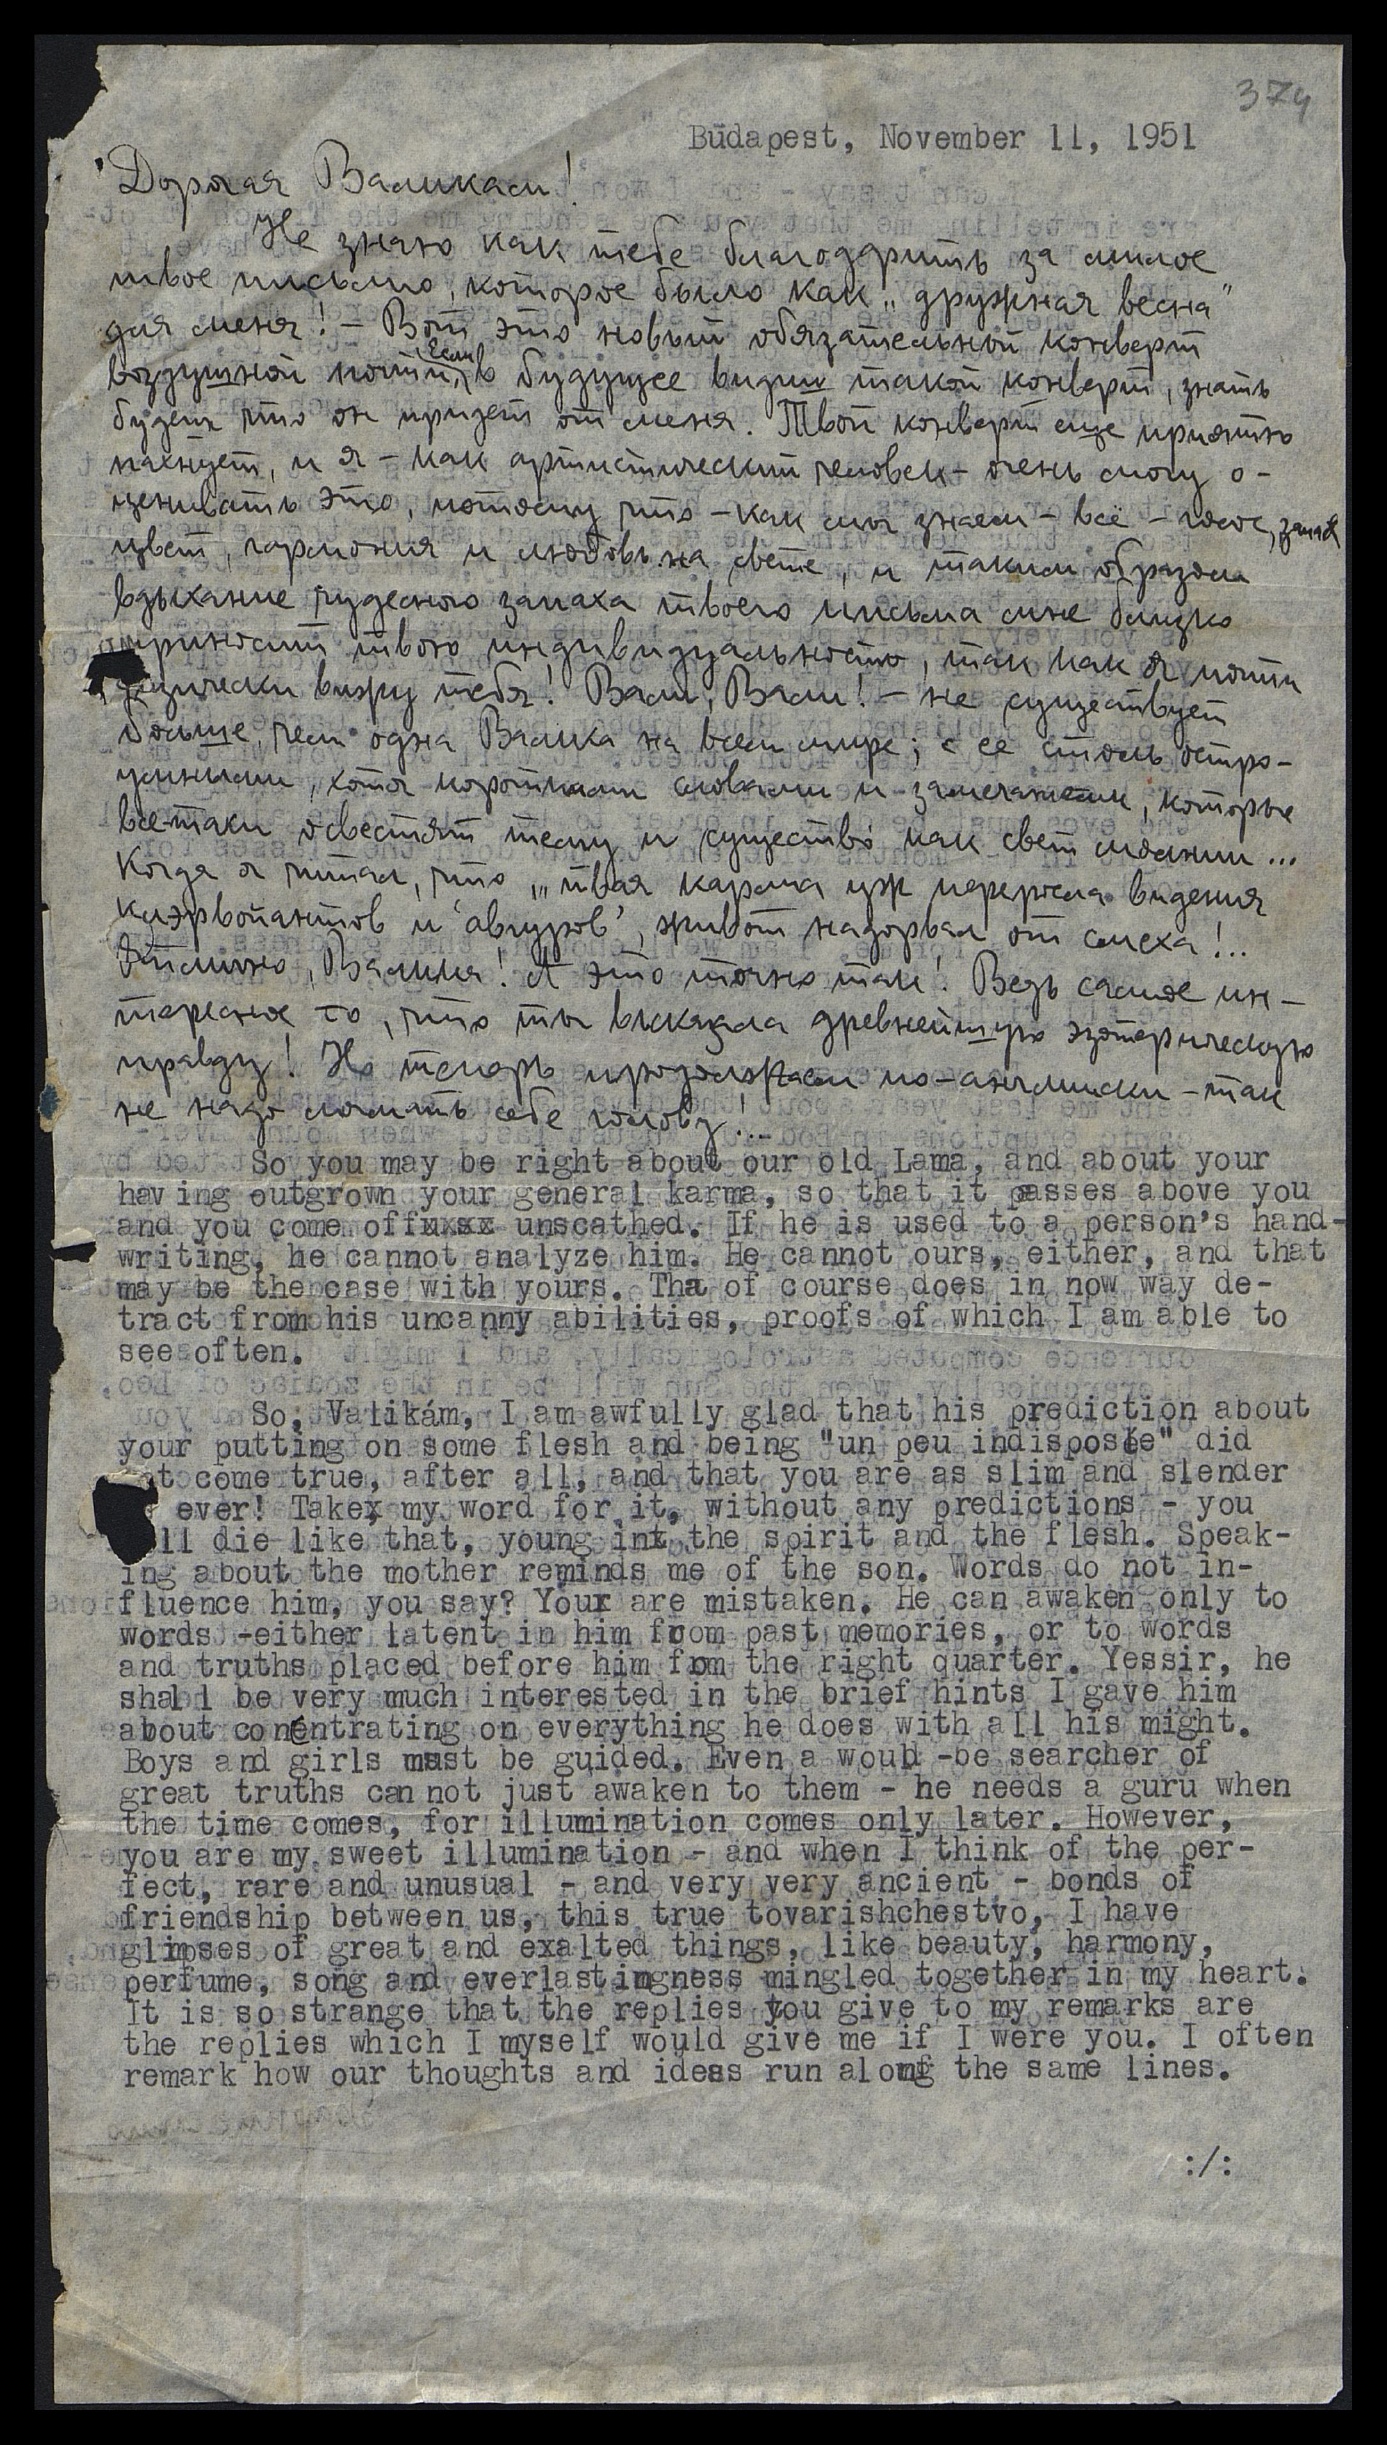 374
Budapest, November 11, 1951
Дорогая Валикам!
Не знаю как тебе благодарить за милое
твое письмо, которое было как „дружная весна"
для меня! – Вот это новый обязательной конверт
воздушной почты, Если в будущее видиш такой конверт, знать
будеш что он придет от меня. Твой конверт еще приятно
пахнует, и я – как артистический человек – очень могу о-
ценивать это, потому что – как мы знаем – всё – голос, запах
цвет, гармония и любовь на свете, и таким образом
вдыхание чудесного запаха твоего письма мне близко
приносит твою индивидуальность, так как я почти
физически вижу тебя! Вали, Вали! – не существует
больше, чем одна Валика на всем мире; с ее столь остро-
умными, хотя короткими словами и замечаниями, которые
всетаки освестят тему и существо как свет молнии ...
Когда я читал, что „твая карма уж переросла видения
клэрвойантов и 'авгуров', живот надорвал от смеха!..
Отлично, Валика! А это точно так! Ведь самое ин-
тересное то, что ты высказала древнейшую эзотерическую
правду! Но теперь продолжаем по-английски – так
не надо ломать себе голову!..
So you may be right about our old Lama, and about your
hav ing outgrown your general karma, so that it passes above you
and you come offxxsx unscathed. If he is used to a person's hand-
writing, he cannot analyze him. He cannot ours, either, and that
may be the case with yours. Tha of course does in now way de-
tract from his uncanny abilities, proofs of which I am able to
see often.
So, Valikám, I am awfully glad that his prediction about
your putting on some flesh and being "un peu indisposée" did
t come true, after all, and that you are as slim and slender
ever! Takex my word for it, without any predictions - you
ll die like that, young inx the spirit and the flesh. Speak-
ing about the mother reminds me of the son. Words do not in-
fluence him, you say? Youx are mistaken. He can awaken only to
words -either latent in him from past memories, or to words
and truths placed before him from the right quarter. Yessir, he
shall be very much interested in the brief hints I gave him
about concentrating on everything he does with all his might.
Boys and girls must be guided. Even a would -be searcher of
great truths can not just awaken to them - he needs a guru when
the time comes, for illumination comes only later. However,
you are my sweet illumination - and when I think of the per-
fect, rare and unusual - and very very ancient - bonds of
friendship between us, this true tovarishchestvo, I have
glimpses of great and exalted things, like beauty, harmony,
perfume, song and everlastingness mingled together in my heart.
It is so strange that the replies you give to my remarks are
the replies which I myself would give me if I were you. I often
remark how our thoughts and ideas run along the same lines.
:/: